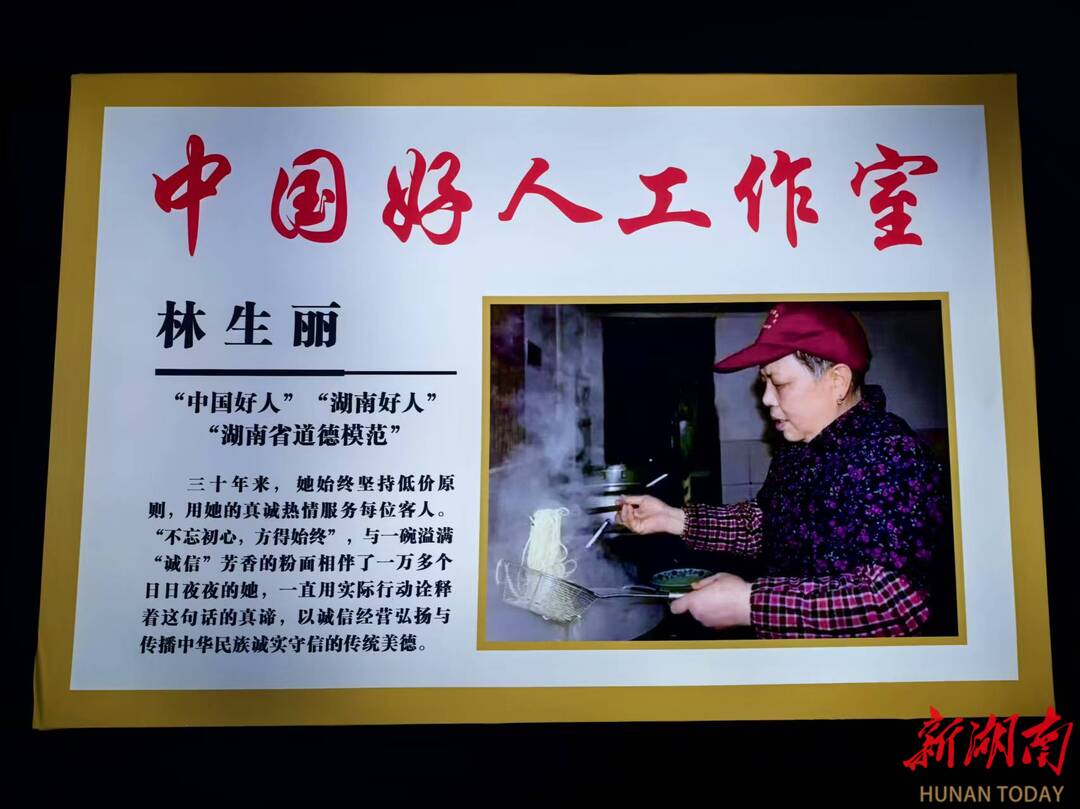 中国好人工作室
林生丽
“中国好人” “湖南好人”
“湖南省道德模范”
三十年来，她始终坚持低价原
则，用她的真诚热情服务每位客人。
“不忘初心，方得始终”，与一碗溢满
“诚信”芳香的粉面相伴了一万多个
日日夜夜的她，一直用实际行动诠释
着这句话的真谛，以诚信经营弘扬与
传播中华民族诚实守信的传统美德。
新湖南
HUNAN TODAY